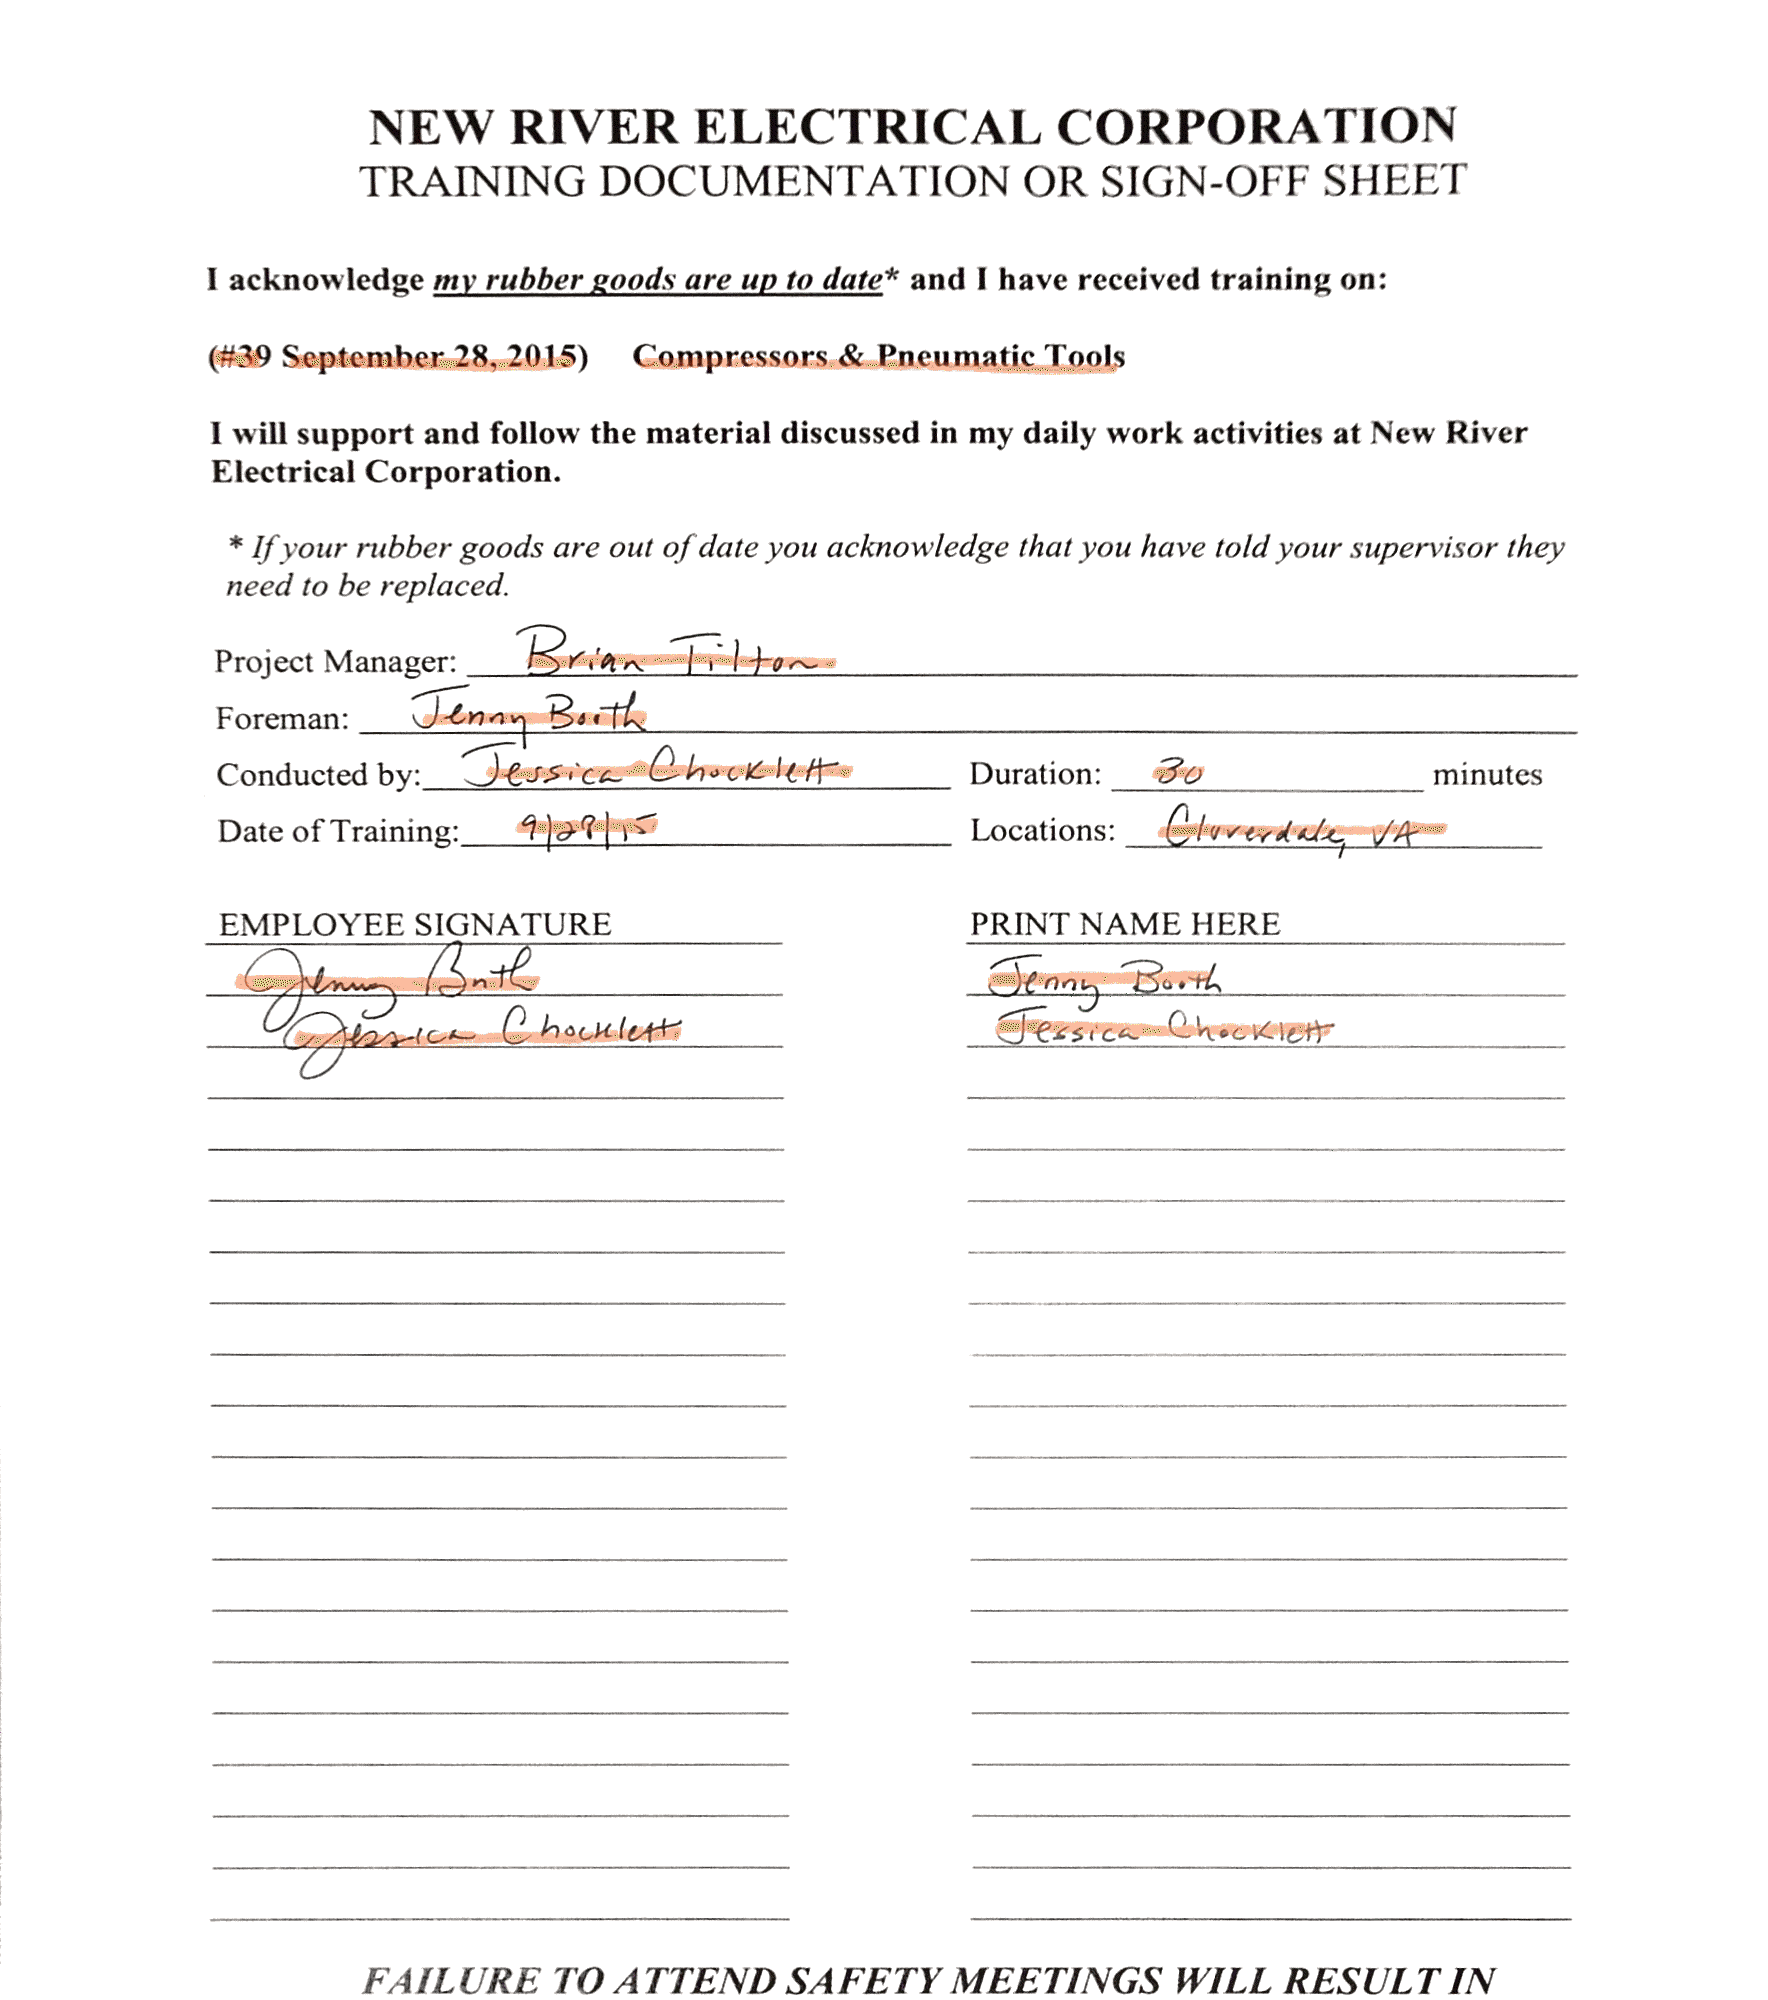 NEW RIVER ELECTRICAL CORPORATION
TRAINING DOCUMENTATION OR SIGN-OFF SHEET
I acknowledge my rubber goods are up to date* and I have received training on:
(#39 September 28, 2015) Compressors & Pneumatic Tools
I will support and follow the material discussed in my daily work activities at New River
Electrical Corporation.
* If your rubber goods are out of date you acknowledge that you have told your supervisor they
need to be replaced.
Project Manager: Brian Tilton
Foreman: Jenny Booth
Conducted by: Jessica Chocklett Duration: 30 minutes
Date of Training: 9/29/15 Locations: Cloverdale, VA
EMPLOYEE SIGNATURE PRINT NAME HERE
Jenny Booth Jenny Booth
Jessica Chocklett Jessica Chocklett
FAILURE TO ATTEND SAFETY MEETINGS WILL RESULT IN